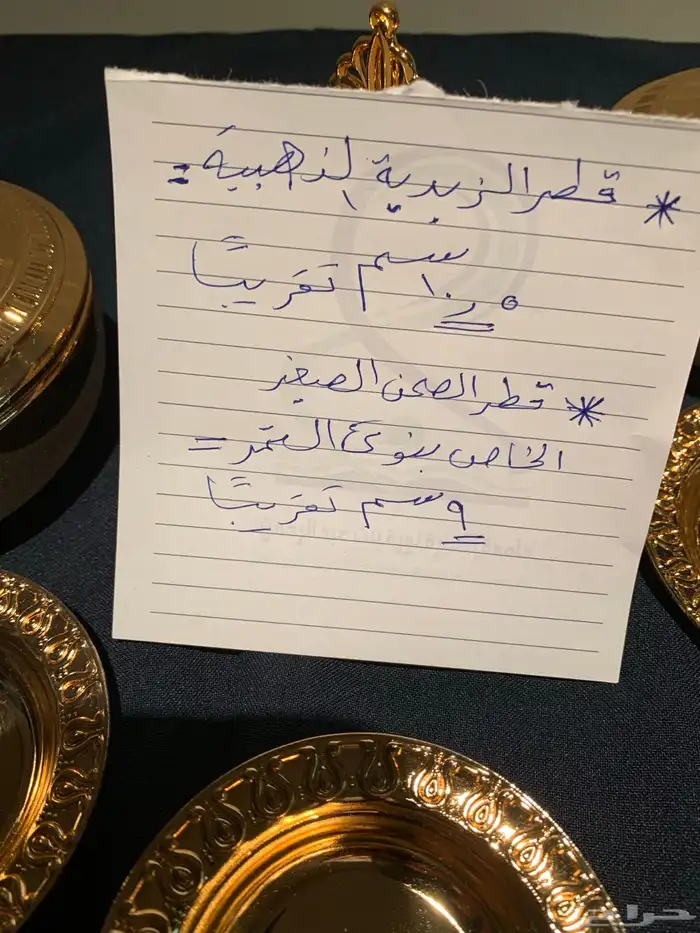 * قطر الزبدية الذهبية =
١٠ر٥ سم تقريبًا
* قطر الصحن الصغير
الخاص بنوى التمر =
٩ سم تقريبًا
حراج